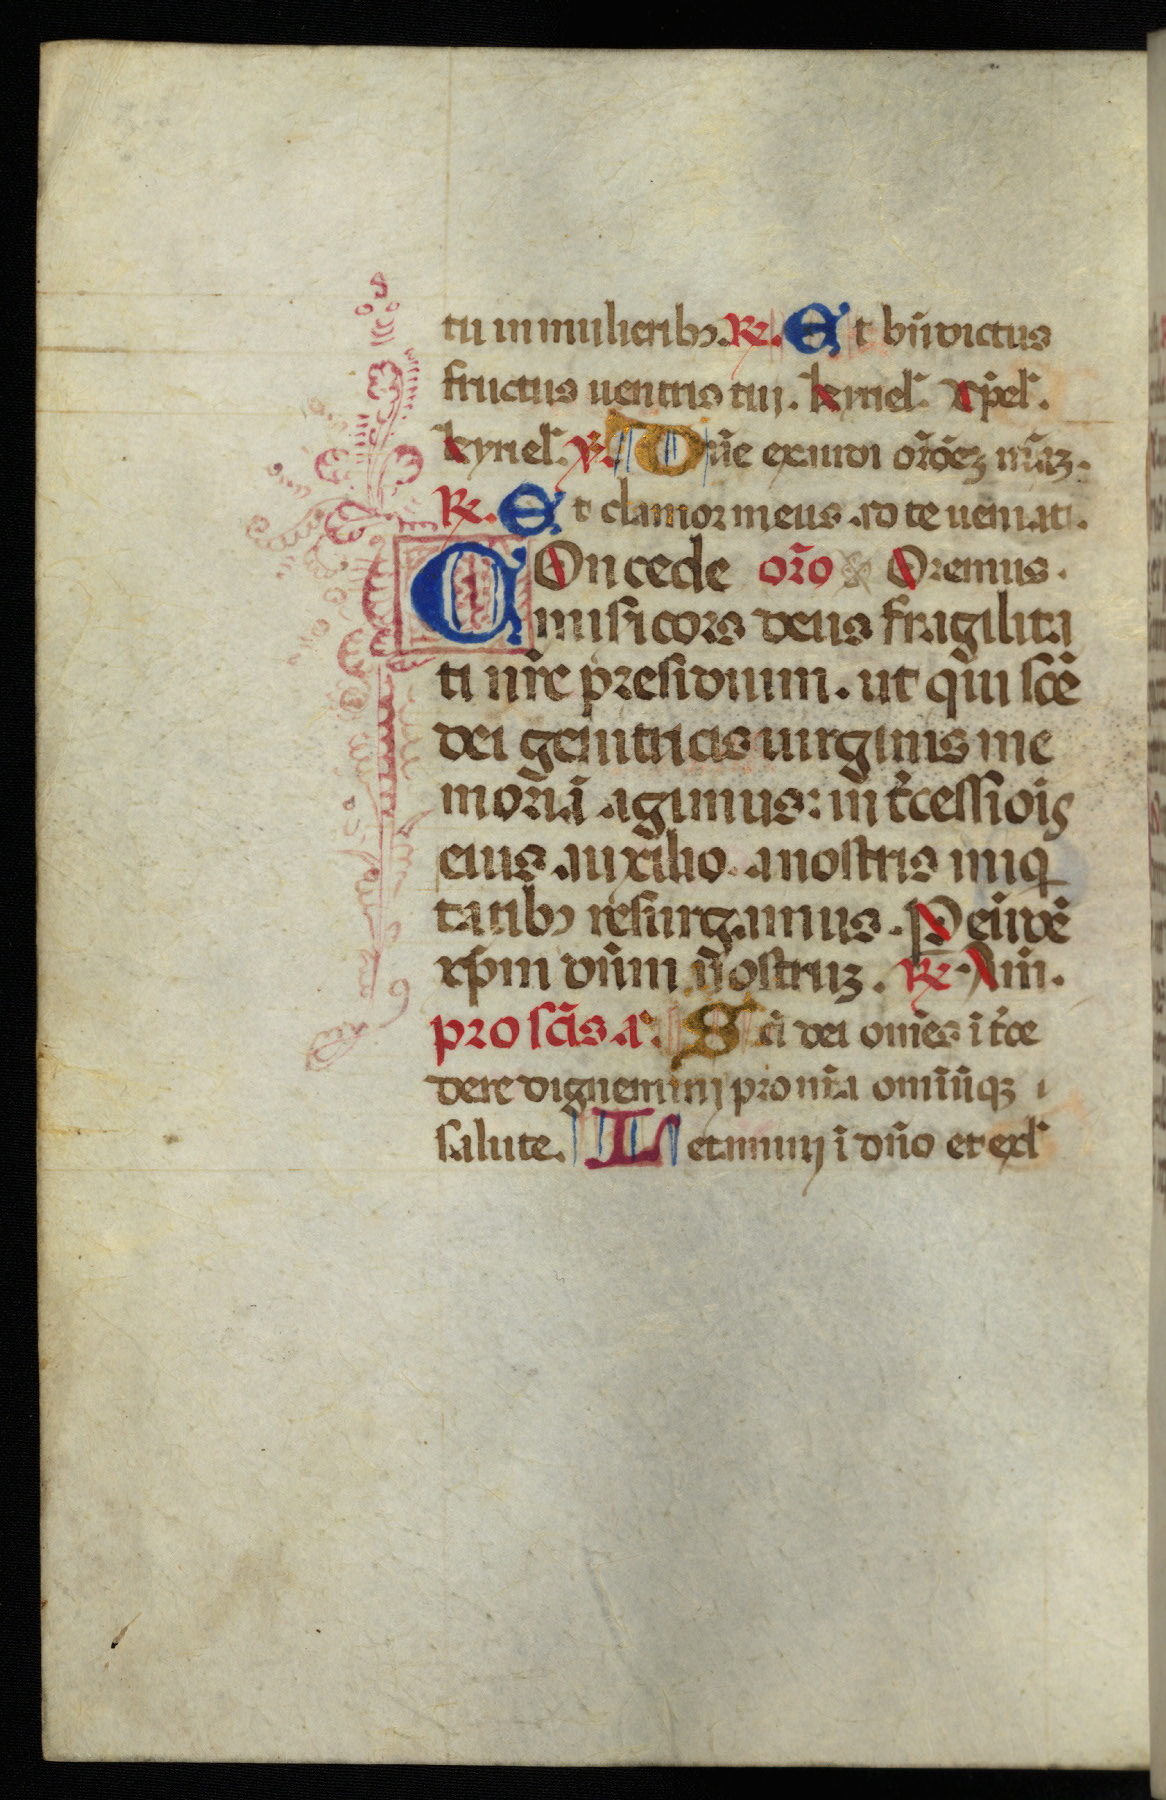 tu in mulieribꝫ. ℞. Et bn̄dictus
fructus uentris tuı. kyriel᷑. xp̄el᷑.
kyriel᷑. ℣. Dn̄e exaudi or̄oēꝫ nr̄aꝫ.
℞. Et clamor meus ad te ueniat.
COncede or̄o Oremus.
misicors deus fragilita
ti nr̄e presidium. ut qui scē
dei genitricis uirginis me
moriā agimus: int̄cessiois
eius auxilio. a nostris iniq
tatibꝫ resurgamus. P eūdē
xp̄m dn̄m nostruꝫ. ℞. Am̄.
pro scīs a᷑. Scī dei om̄es īt̄ce
dere dignemini pro nr̄a omīūqꝫ
salute. Letamini ī dn̄o et exl᷑